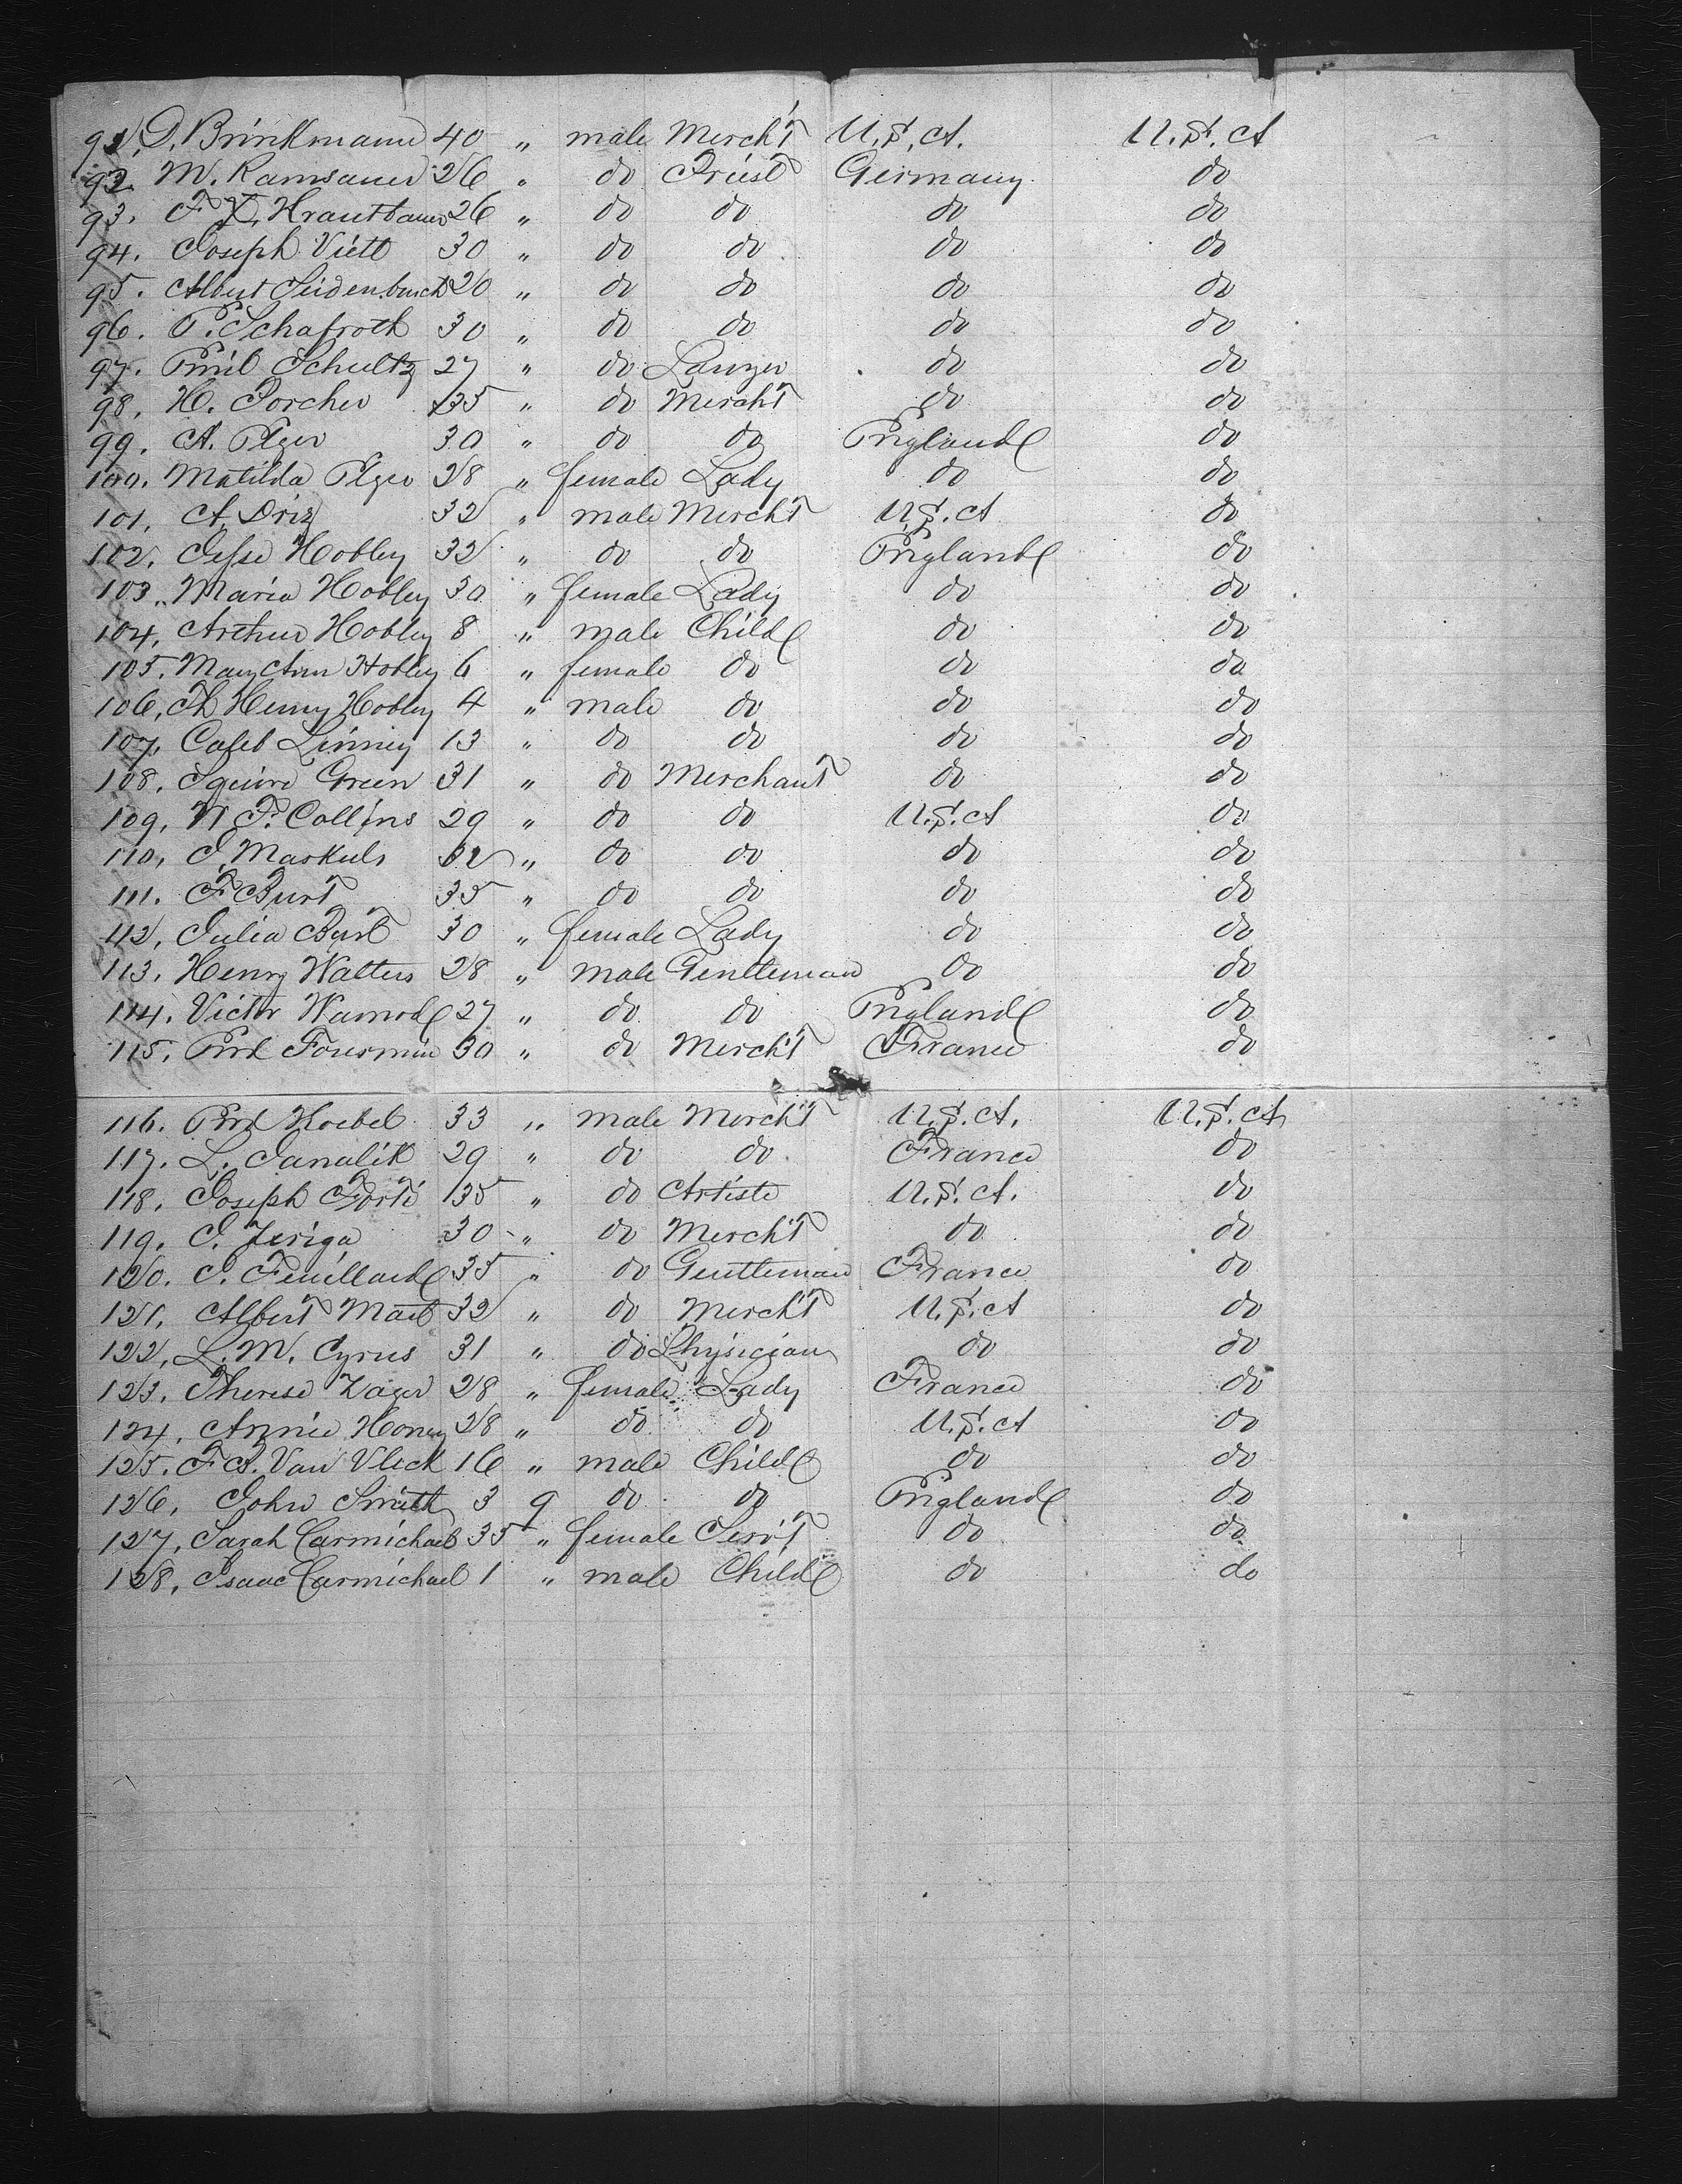 91. D. Brinkmann 40 " male Mercht U.S.A. U.S.A
92. M. Ramsauer 26 " do Priest Germany do
93. F X. Krautbauer 26 " do do do do
94. Joseph Viett 30 " do do do do
95. Albert Seidenbusch 20 " do do do do
96. P. Schafroth 30 " do do do do
97. Emil Schultz 27 " do do do
98. H. Porcher 35 " do Mercht do do
99. A. Elger 30 " do do England do
100. Matilda Elger 28 " female Lady do do
101. A. Driz 32 " male Mercht U.S.A do
102. Jesse Hobley 32 " do do England do
103. Maria Hobley 30 " female Lady do do
104. Arthur Hobley 8 " male Child do do
105. Mary Ann Hobley 6 " female do do do
106. Th Henry Hobley 4 " male do do do
107. Caleb Linney 13 " do do do do
108. Squire Green 31 " do Merchant do do
109. N F. Collins 29 " do do U.S.A do
110. J. Maskuls 32 " do do do do
111. F Burt 35 " do do do do
112. Julia Burt 30 " female Lady do do
113. Henry Walters 28 " male Gentleman do do
114. Victor 27 " do do England do
115. 30 " do Mercht France do
116. 33 " male Mercht U.S.A. U.S.A
117. L. Janalik 29 " do do France do
118. Joseph Forti 35 " do Artiste U.S.A. do
119. J. Zeriga 30 " do Mercht do do
120. J. Feuillard 35 " do Gentleman France do
121. Albert 32 " do Mercht U.S.A do
122. L. M. Cyrus 31 " do Physician do do
123. Therese Zager 28 " female Lady France do
124. Annie Honey 28 " do do U.S.A do
125. F B. Van Vleck 16 " male Child do do
126. John Smith 3 9 do do England do
127. Sarah Carmichael 35 " female Servt do do
128. Isaac Carmichael 1 " male Child do do